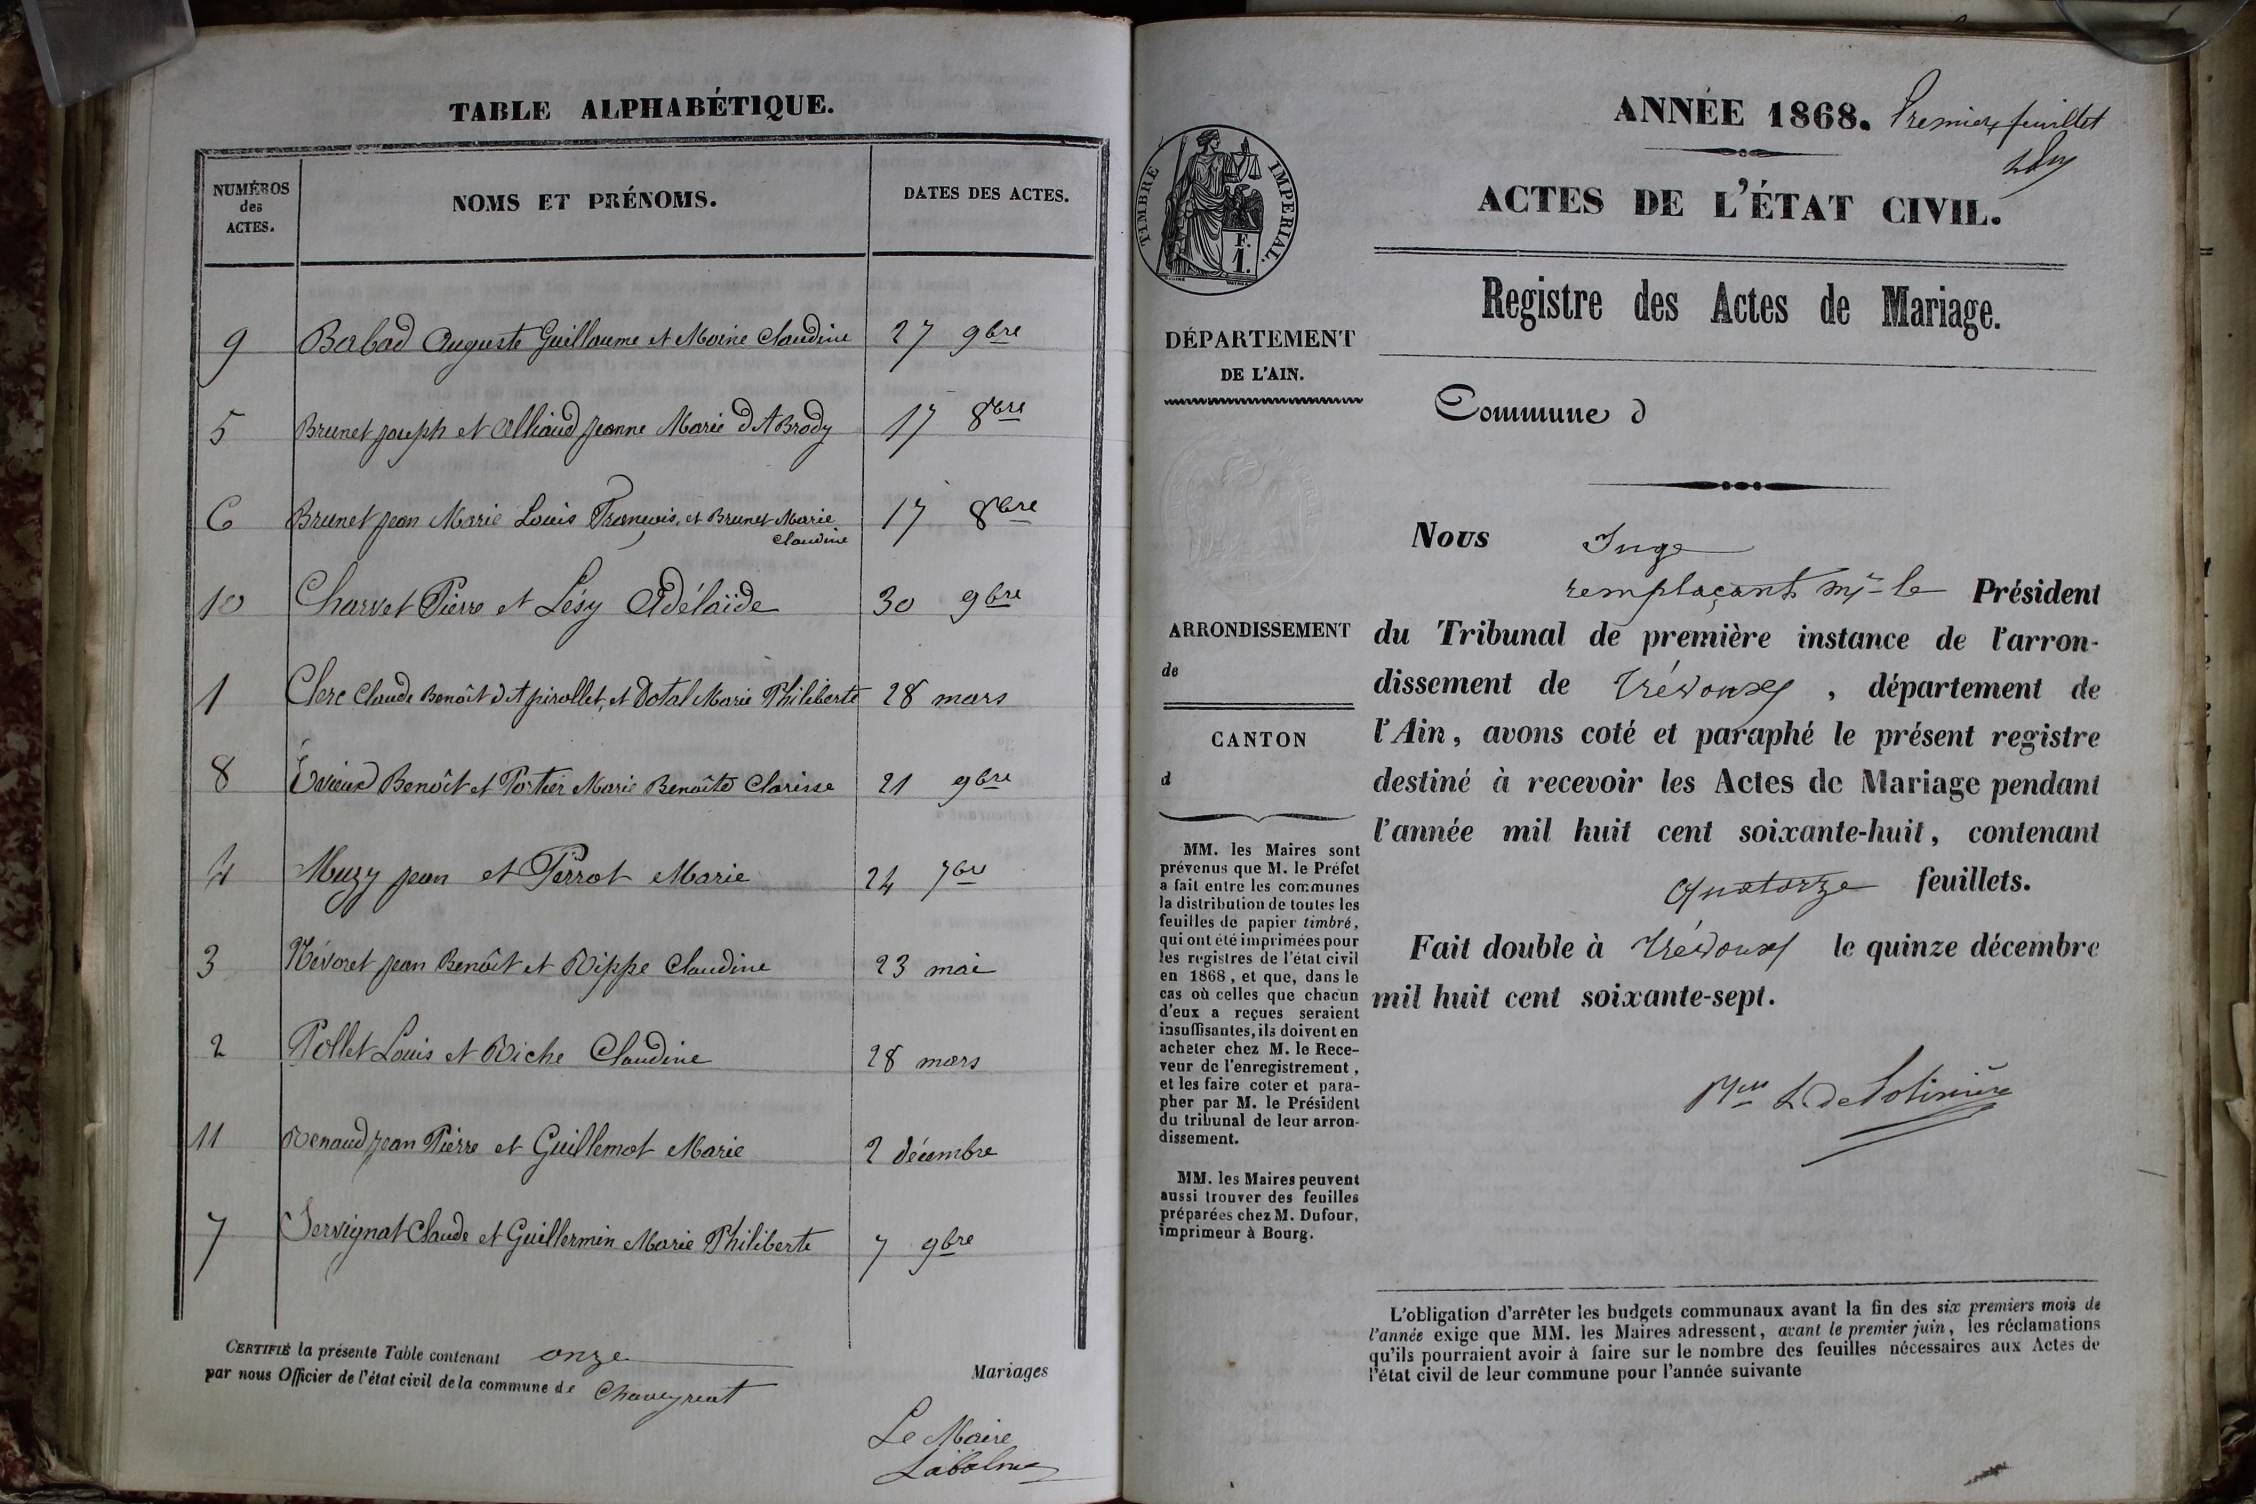 TABLE ALPHABÉTIQUE.
NUMÉROS des ACTES.
NOMS ET PRÉNOMS.
DATES DES ACTES.
9 Babad Auguste Guillaume et Moine Claudine 27 9bre
5 Brunet Joseph et Alliaud Jeanne Marie 17 8bre
6 Brunet Jean Marie Louis François, et Brunet Marie 17 8bre
Claudine
10 Charvet Pierre et Lésy Adélaïde 30 9bre
1 Clerc Claude Benoît et Dotal Marie Philiberte 28 mars
8 Évieux Benoît et Portier Marie Benoîte Clarisse 21 9bre
4 Muzy Jean et Perrot Marie 24 7bre
3 Névoret Jean Benoît et Rippe Claudine 23 mai
2 Pollet Louis et Riche Claudine 28 mars
11 Renaud Jean Pierre et Guillemot Marie 2 décembre
7 Servignat Claude et Guillermin Marie Philiberte 7 9bre
CERTIFIÉ la présente Table contenant onze Mariages
par nous Officier de l'état civil de la commune de Chaveyriat
Le Maire
Labalme
ANNÉE 1868. Premier feuillet
ACTES DE L'ÉTAT CIVIL.
TIMBRE IMPERIAL.
F.
1.
Registre des Actes de Mariage.
DÉPARTEMENT
DE L'AIN.
Commune d
ARRONDISSEMENT
de
CANTON
d
MM. les Maires sont
prévenus que M. le Préfet
a fait entre les communes
la distribution de toutes les
feuilles de papier timbré,
qui ont été imprimées pour
les registres de l'état civil
en 1868, et que, dans le
cas où celles que chacun
d'eux a reçues seraient
insuffisantes, ils doivent en
acheter chez M. le Rece-
veur de l'enregistrement,
et les faire coter et para-
pher par M. le Président
du tribunal de leur arron-
dissement.
MM. les Maires peuvent
aussi trouver des feuilles
préparées chez M. Dufour,
imprimeur à Bourg.
Nous Juge
remplaçant Mr le Président
du Tribunal de première instance de l'arron-
dissement de Trévoux, département de
l'Ain, avons coté et paraphé le présent registre
destiné à recevoir les Actes de Mariage pendant
l'année mil huit cent soixante-huit, contenant
quatorze feuillets.
Fait double à Trévoux le quinze décembre
mil huit cent soixante-sept.
L'obligation d'arrêter les budgets communaux avant la fin des six premiers mois de
l'année exige que MM. les Maires adressent, avant le premier juin, les réclamations
qu'ils pourraient avoir à faire sur le nombre des feuilles nécessaires aux Actes de
l'état civil de leur commune pour l'année suivante